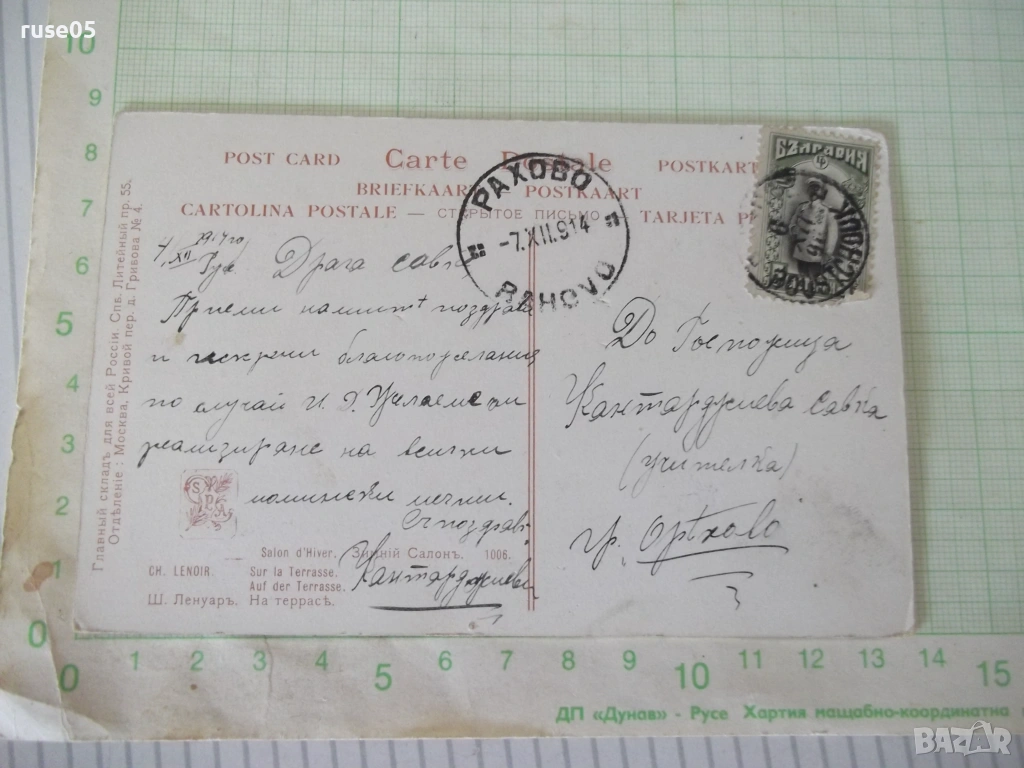 ruse05
POST CARD Carte Postale POSTKART
BRIEFKAART POSTKAART
CARTOLINA POSTALE — ОТКРЫТОЕ ПИСЬМО — TARJETA
РАХОВО
-7.XII.914
RAHOVO
БЪЛГАРИЯ
ROUSTCHOUK
Главный складъ для всей Россіи Спб. Литейный пр. 55.
Отдѣленіе: Москва, Кривой пер. д. Грибова № 4.
4/XII 1914 го
Драга Савк
Приеми нашит поздрав
и искрени благопожелания
по случай И. Д.
реализиране на всички
мечти.
С поздрав
Кантарджиеви
До Госпорица
Кантарджиева Савка
(учителка)
гр. Орѣхово
Salon d'Hiver. Зимній Салонъ. 1006.
CH. LENOIR. Sur la Terrasse.
Auf der Terrasse.
Ш. Ленуаръ. На террасѣ.
10
9
8
7
6
5
4
3
2
1
0
0 1 2 3 4 5 6 7 8 9 10 11 12 13 14 15
ДП «Дунав» - Русе Хартия мащабно-координатна
BAZAR